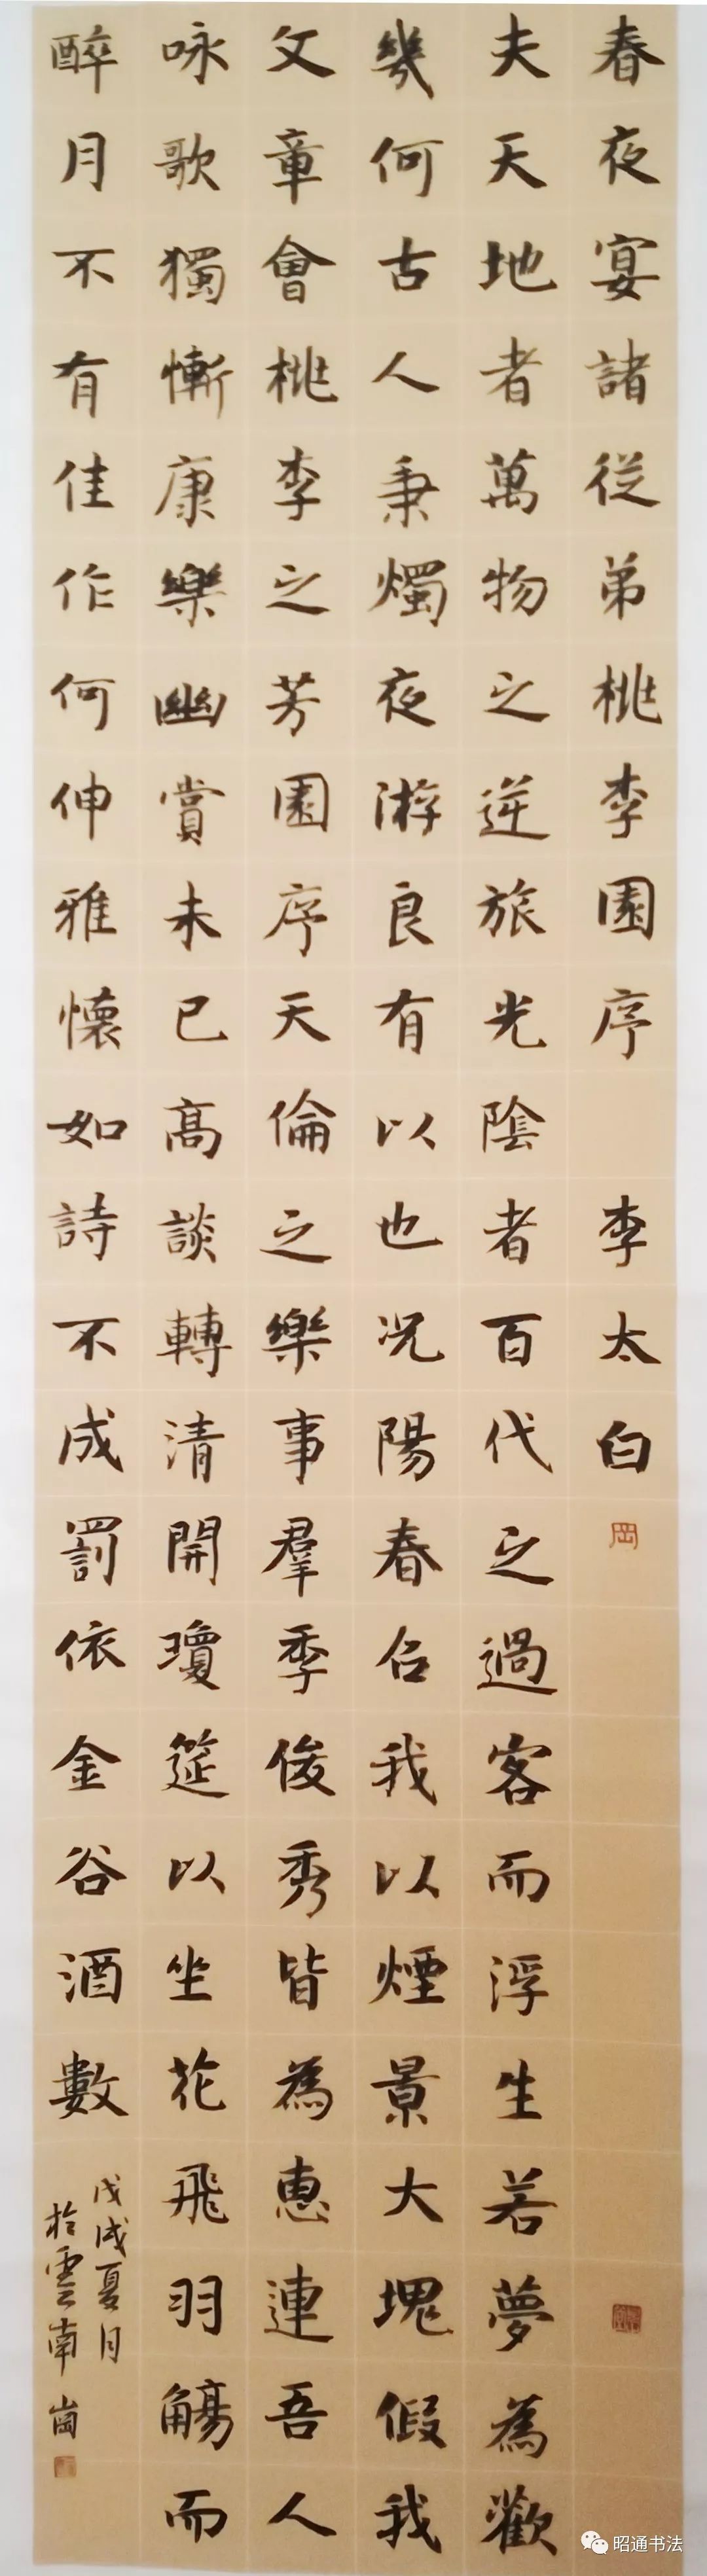 春夜宴諸從弟桃李園序 李太白
夫天地者萬物之逆旅光陰者百代之過客而浮生若夢為歡
幾何古人秉燭夜游良有以也况陽春召我以煙景大塊假我
文章會桃李之芳園序天倫之樂事羣季俊秀皆為惠連吾人
咏歌獨慚康樂幽賞未已高談轉清開瓊筵以坐花飛羽觴而
醉月不有佳作何伸雅懷如詩不成罰依金谷酒數
戊戌夏月
於雲南 崗
昭通书法